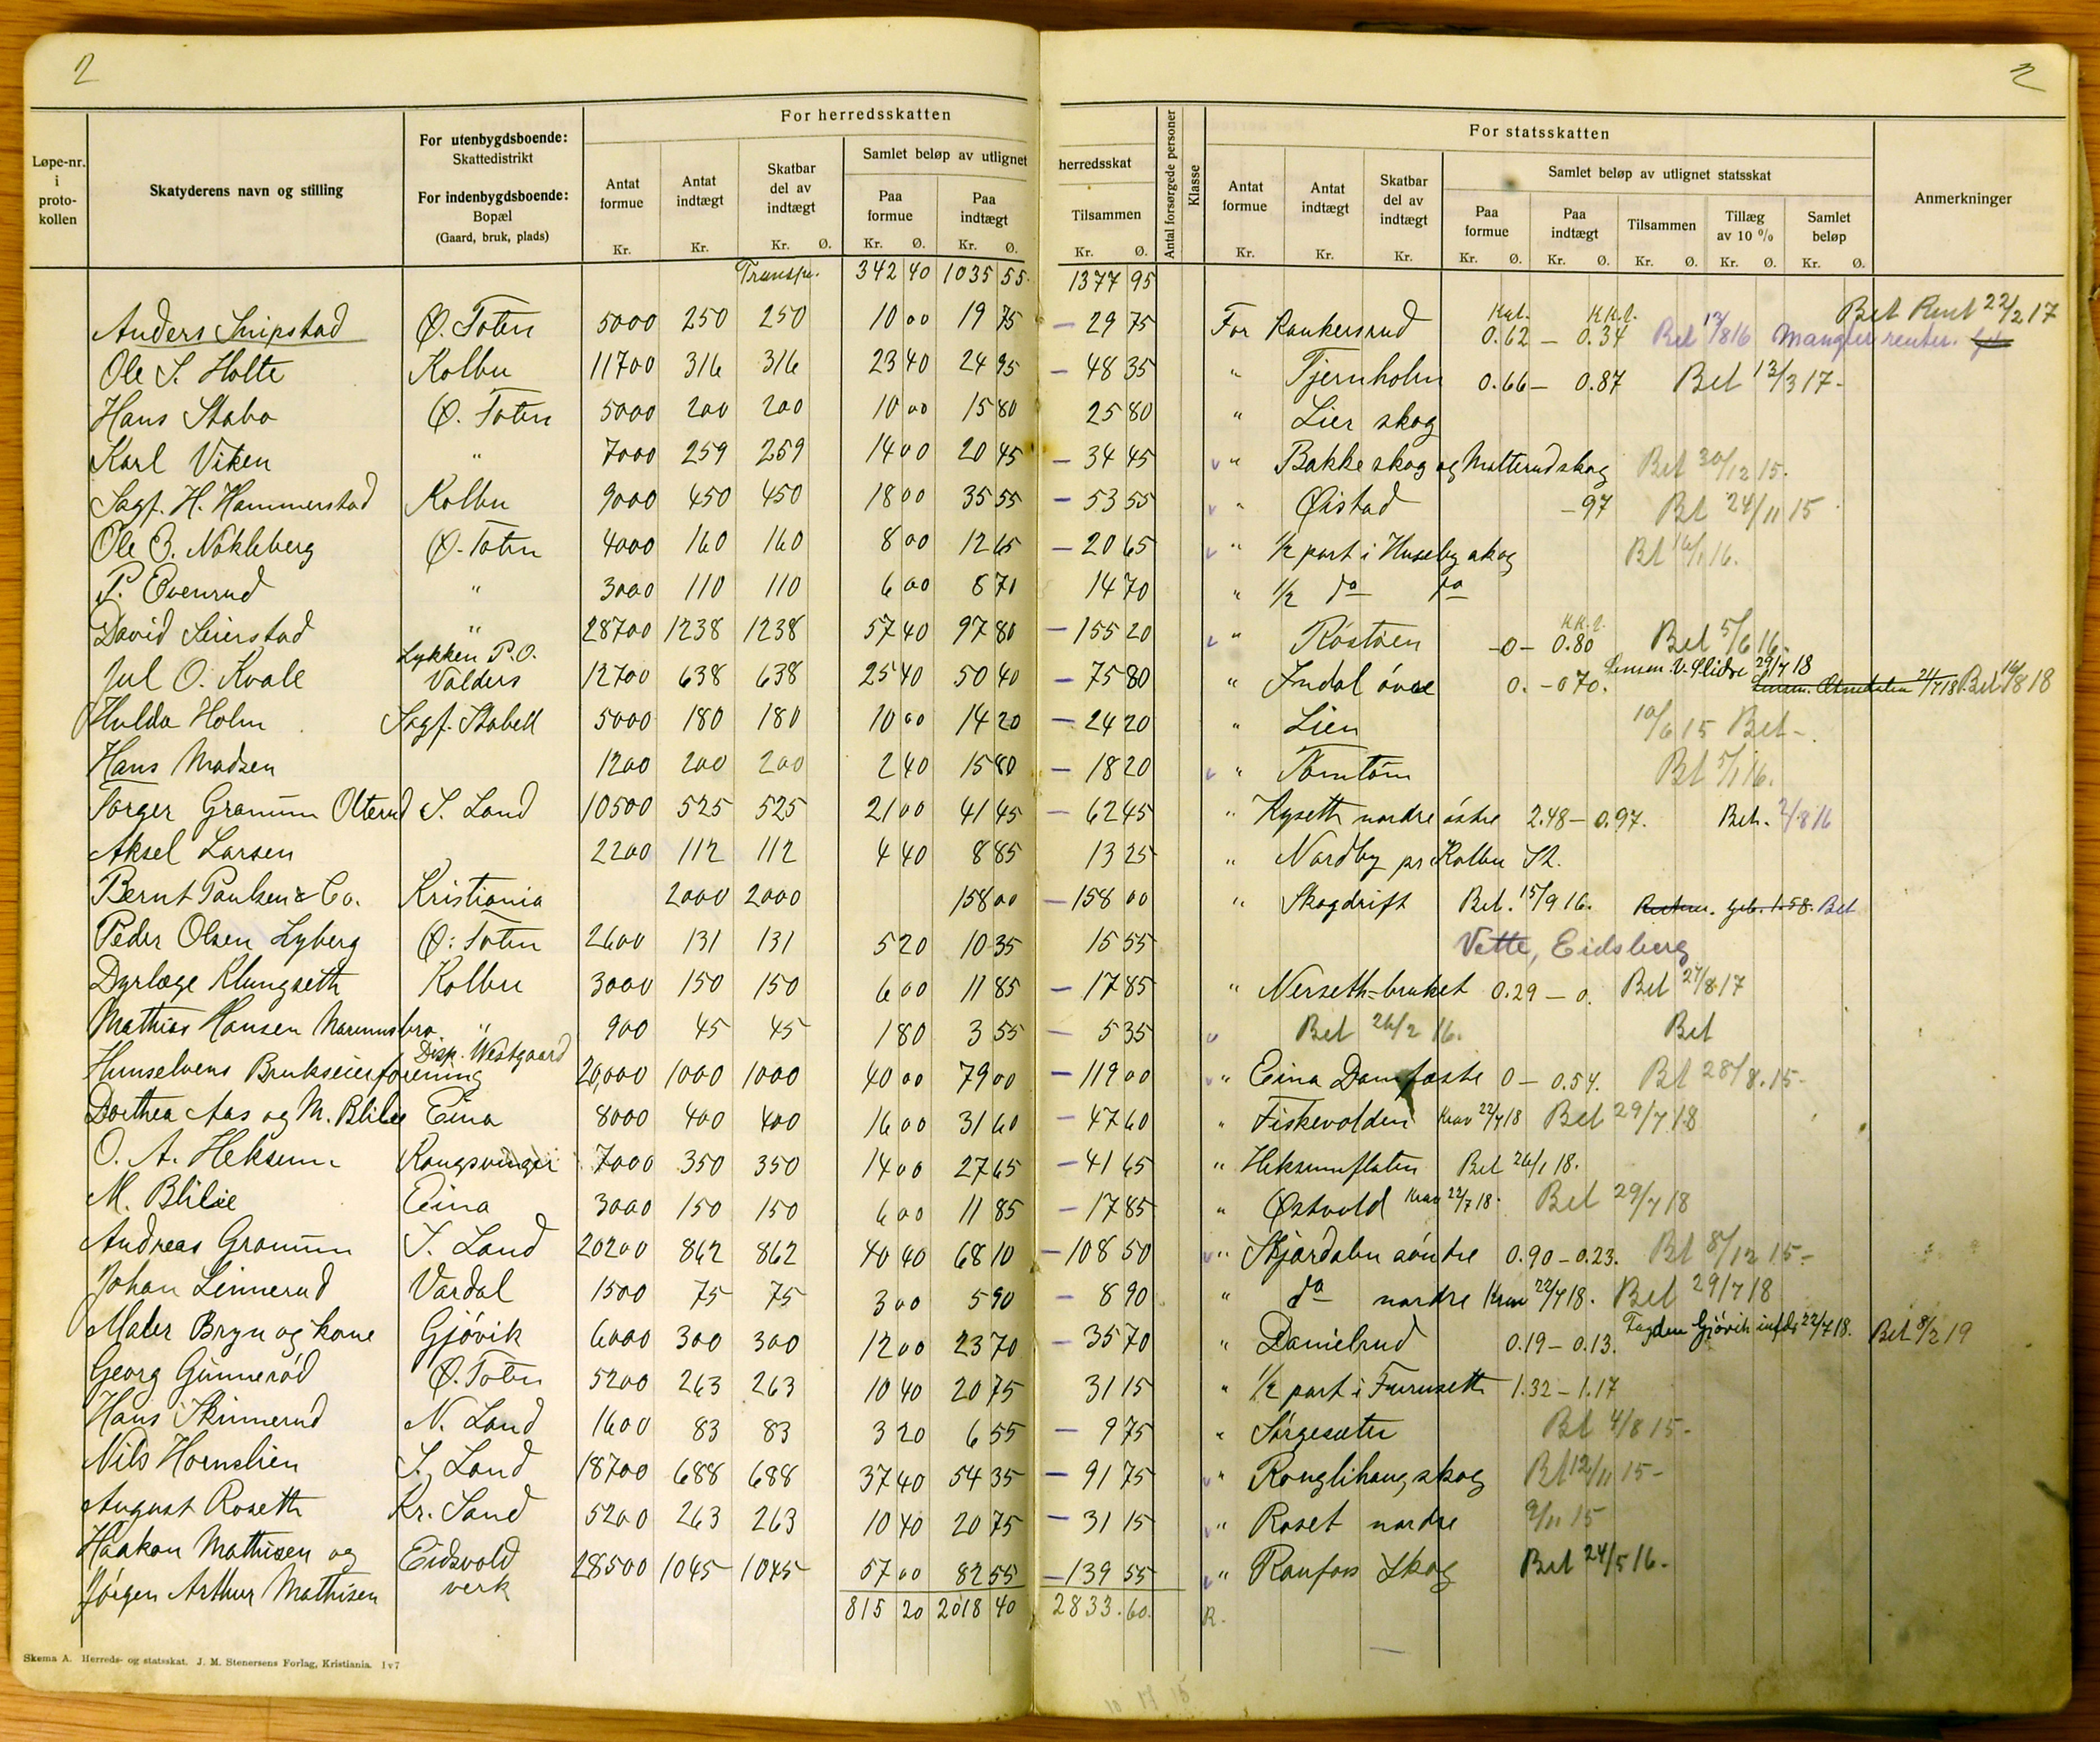 2
2
Løpe-nr. i proto-kollen
Skatyderens navn og stilling
For utenbygdsboende: Skattedistrikt
For indenbygdsboende: Bopæl (Gaard, bruk, plads)
For herredsskatten
Antat formue Kr.
Antat indtægt Kr.
Skatbar del av indtægt Kr. Ø.
Samlet beløp av utlignet herredsskat
Paa formue Kr. Ø.
Paa indtægt Kr. Ø.
Tilsammen Kr. Ø.
Antal forsørgede personer
Klasse
For statsskatten
Antat formue Kr.
Antat indtægt Kr.
Skatbar del av indtægt Kr.
Samlet beløp av utlignet statsskat
Paa formue Kr. Ø.
Paa indtægt Kr. Ø.
Tilsammen Kr. Ø.
Tillæg av 10 % Kr. Ø.
Samlet beløp Kr. Ø.
Anmerkninger
Transp. 342 40 1035 55 1377 95
Anders Snipstad Ø. Toten 5000 250 250 10 00 19 75 — 29 75 For Rankersrud 0.62 — 0.34 Bet 12/8 16 Mangler renter. Bet Rent 22/2 17
Ole S. Holte Kolbu 11700 316 316 23 40 24 95 — 48 35 " Tjernholm 0.66 — 0.87 Bet 13/3 17-
Hans Stabo Ø. Toten 5000 200 200 10 00 15 80 25 80 " Lier skog
Karl Viken " 7000 259 259 14 00 20 45 — 34 45 " Bakke skog og Matterudskog Bet 30/12 15.
Sagf. H. Hammerstad Kolbu 9000 450 450 18 00 35 55 — 53 55 " Øistad - 97 Bt 24/11 15
Ole O. Nøkleberg Ø. Toten 4000 160 160 8 00 12 65 — 20 65 " 1/2 part i Huseby skog Bt 16/1 16.
P. Evenrud " 3000 110 110 6 00 8 70 14 70 " 1/2 do do
David Seierstad " 28700 1238 1238 57 40 97 80 — 155 20 " Røstøen -0- 0.80 Bet 5/6 16.
Jul O. Kvale Lykken P.O. Valders 12700 638 638 25 40 50 40 — 75 80 " Indal övre 0. - 0 70. Lensm. V. Slidre 29/7 18 Bet 14/8 18
Hulda Holm Sagf. Stabell 5000 180 180 10 00 14 20 — 24 20 " Lien 10/6 15 Bet -
Hans Madsen 1200 200 200 2 40 15 80 — 18 20 " Tomtom Bt 5/1 16.
Torger Granum Olterud S. Land 10500 525 525 21 00 41 45 — 62 45 " Kyseth nordre östre 2.48 — 0.97. Bet. 2/8 16
Aksel Larsen 2200 112 112 4 40 8 85 13 25 " Nordby pr Kolbu St.
Bernt Paulsen & Co. Kristiania 2000 2000 158 00 — 158 00 " Skogdrift Bet. 15/9 16. Geb. 1.58. Bet
Peder Olsen Lyberg Ø. Toten 2600 131 131 5 20 10 35 15 55 Vette, Eidsberg
Dyrlæge Klungseth Kolbu 3000 150 150 6 00 11 85 — 17 85 " Nerseth-bruket 0.29 — 0. Bet 27/8 17
Mathias Hansen Narumsbro " 900 45 45 1 80 3 55 — 5 35 Bet 26/2 16. Bet
Hunselvens Brukseierforening Disp. Westgaard 20,000 1000 1000 40 00 79 00 — 119 00 " Eina Damfæste 0 — 0.54. Bt 28/8. 15-
Dorthea Aas og M. Blilie Eina 8000 400 400 16 00 31 60 — 47 60 " Fiskevolden Krav 22/7 18 Bet 29/7 18
O. A. Heksum Kongsvinger 7000 350 350 14 00 27 65 — 41 65 " Heksumflaten Bet 26/1 18.
M. Blilie Eina 3000 150 150 6 00 11 85 — 17 85 " Østvold Krav 22/7 18. Bet 29/7 18
Andreas Granum S. Land 20200 862 862 40 40 68 10 — 108 50 " Skjærdalen söndre 0.90 — 0.23. Bt 8/12 15-
Johan Linnerud Vardal 1500 75 75 3 00 5 90 — 8 90 " do nordre Krav 22/7 18. Bet 29/7 18
Maler Bryn og kone Gjøvik 6000 300 300 12 00 23 70 — 35 70 " Danielrud 0.19 — 0.13. Fogden Gjövik 22/7 18. Bet 8/2 19
Georg Gunneröd Ø. Toten 5200 263 263 10 40 20 75 31 15 " 1/2 part i Furuseth 1.32 — 1.17
Hans Skinnerud N. Land 1600 83 83 3 20 6 55 — 9 75 " Sörgesæter Bt 4/8 15-
Nils Hornslien S. Land 18700 688 688 37 40 54 35 — 91 75 " Ronglihaug skog Bt 12/11 15-
August Roseth Kr. Sand 5200 263 263 10 40 20 75 — 31 15 " Roset nordre 9/11 15
Haakon Mathisen og Eidsvold 28500 1045 1045 57 00 82 55 — 139 55 " Raufoss Skog Bet 24/5 16-
Jörgen Arthur Mathisen verk
815 20 2018 40 2833.60. R.
Skema A. Herreds- og statsskat. J. M. Stenersens Forlag, Kristiania. 1v7